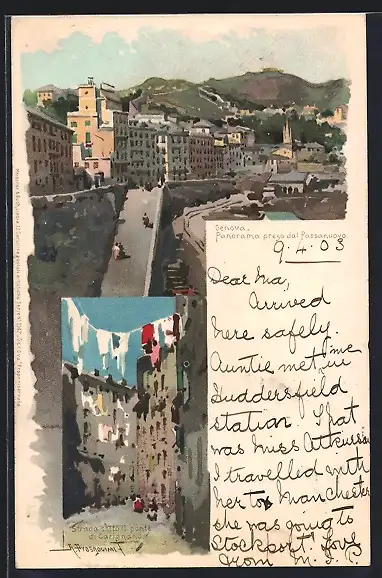 Genova.
Panorama preso dal Passanuovo
9.4.03
Dear Ma,
Arrived
here safely.
Auntie met me in
Huddersfield
station I sat
was Miss Atkinson
I travelled with
her to Manchester
she was going to
Stockport. Love
from M. J. R.
Strada sotto il ponte
di Carignano